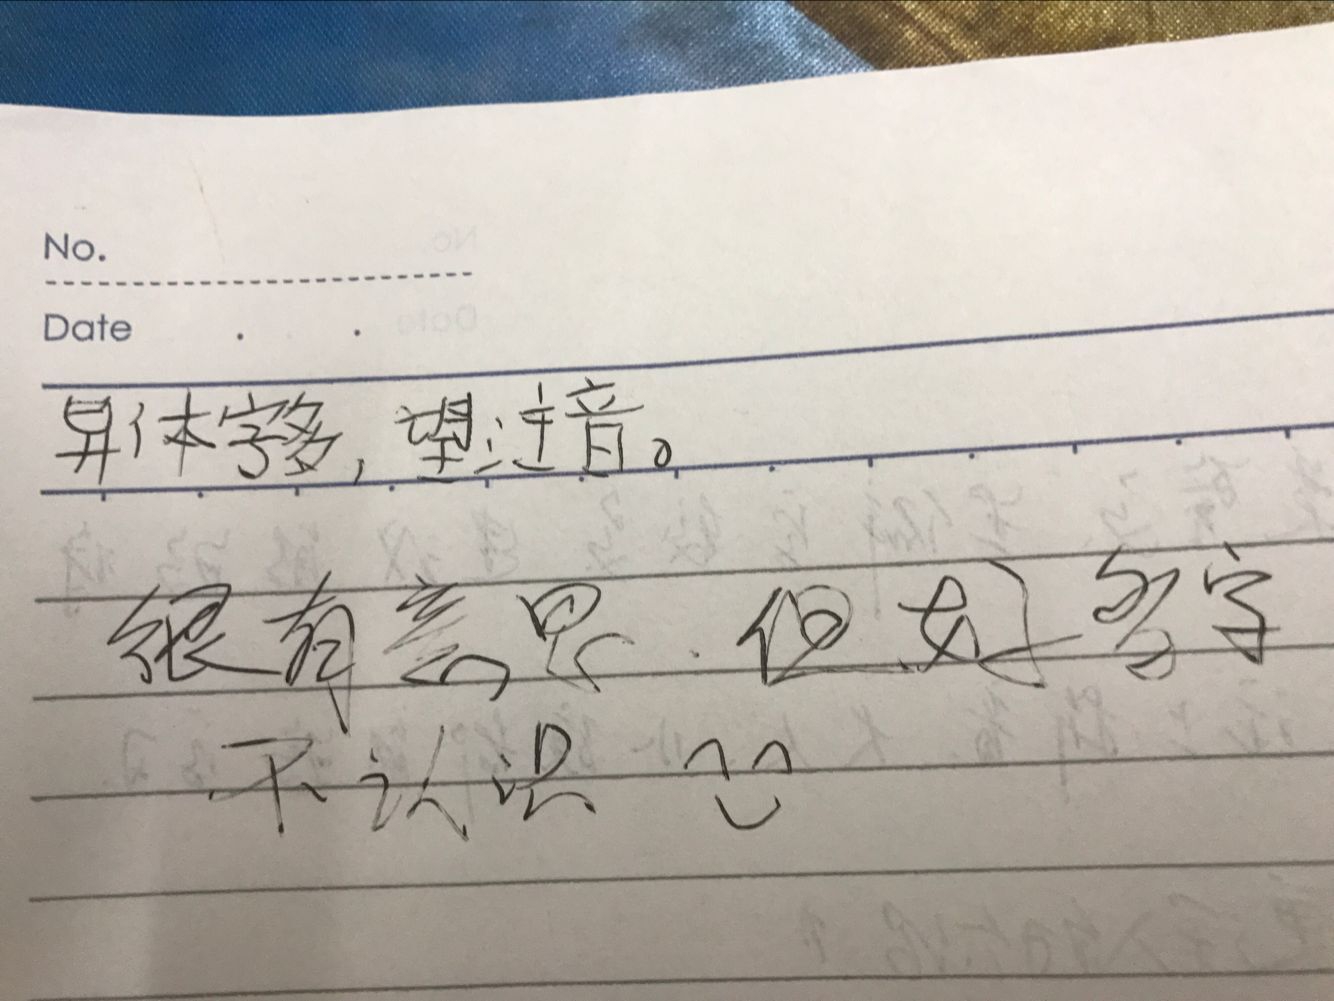 No.
Date . .
异体字多,望注音。
很有意思.但好多字
不认识